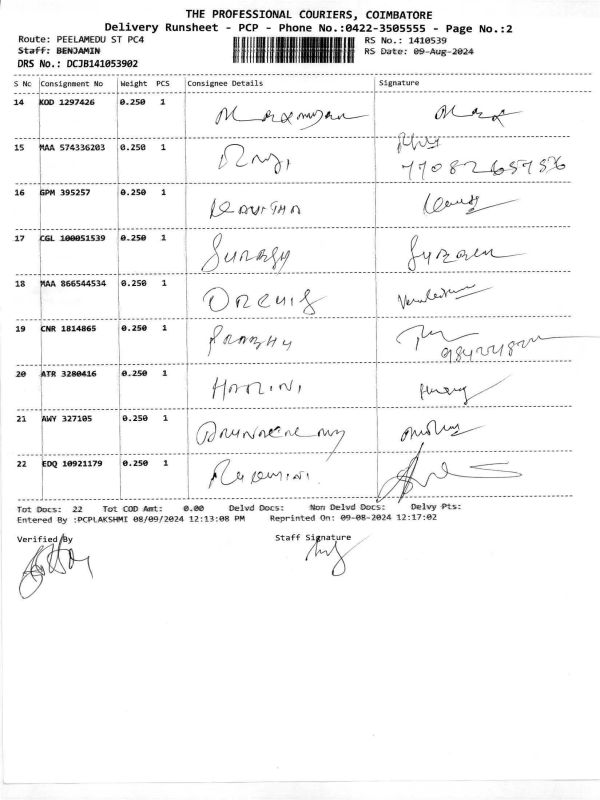 THE PROFESSIONAL COURIERS, COIMBATORE
Delivery Runsheet - PCP - Phone No.:0422-3505555 - Page No.:2
Route: PEELAMEDU ST PC4 RS No.: 1410539
Staff: BENJAMIN RS Date: 09-Aug-2024
DRS No.: DCJB141053902
S No Consignment No Weight PCS Consignee Details Signature
14 KOD 1297426 0.250 1
15 MAA 574336203 0.250 1
16 GPM 395257 0.250 1 KAVITHA
17 CGL 100051539 0.250 1 SURESH
18 MAA 866544534 0.250 1
19 CNR 1814865 0.250 1 PRABHU
20 ATR 3280416 0.250 1 HARINI
21 AWY 327105 0.250 1
22 EDQ 10921179 0.250 1
Tot Docs: 22 Tot COD Amt: 0.00 Delvd Docs: Non Delvd Docs: Delvy Pts:
Entered By :PCPLAKSHMI 08/09/2024 12:13:08 PM Reprinted On: 09-08-2024 12:17:02
Verified By Staff Signature